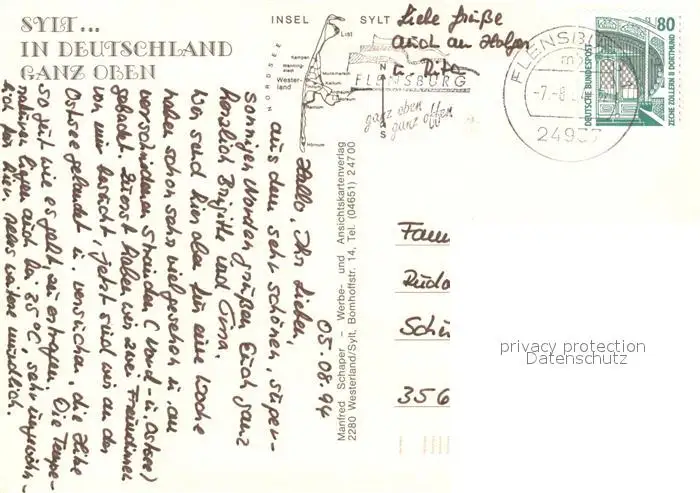 SYLT...
IN DEUTSCHLAND
GANZ OBEN
INSEL SYLT
NORDSEE
List
Kampen
Wester-
land
Hörnum
FLENSBURG
ganz oben
ganz offen
Liebe Grüße
auch an Holger
u. Rita
FLENSBURG
-7.-8.
24937
80
DEUTSCHE BUNDESPOST
ZECHE ZOLLERN II DORTMUND
05.08.94
Hallo, Ihr Lieben,
aus dem sehr schönen, super-
sonnigen Norden grüßen Euch ganz
herzlich Brigitte und
Wir sind hier oben für eine Woche
haben schon sehr viel gesehen u. an
verschiedenen Stränden (Nord- u. Ostsee)
gebadet. Zuerst haben wir zwei Freundinnen
von mir besucht, jetzt sind wir an der
Ostsee gelandet u. versuchen, die Hitze
so gut wie es geht, zu ertragen. Die Tempe-
raturen liegen auch bei 35°C, sehr ungewöhn-
lich für hier. Alles weitere mündlich.
Manfred Schaper - Werbe- und Ansichtskartenverlag
2280 Westerland/Sylt, Bomhoffstr. 14, Tel. (04651) 24700
Fam
Rudo
Schü
356
privacy protection
Datenschutz